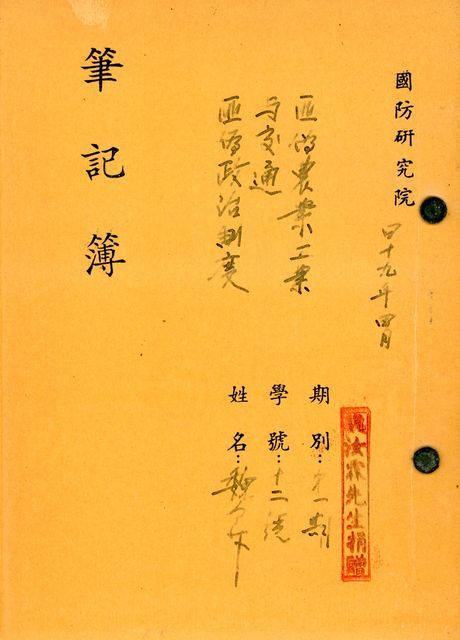 國防研究院
四十九年四月
匪偽農業工業
与交通
匪偽政治制度
筆記簿
期別：第一期
學號：十二號
姓名：
魏汝霖先生捐贈